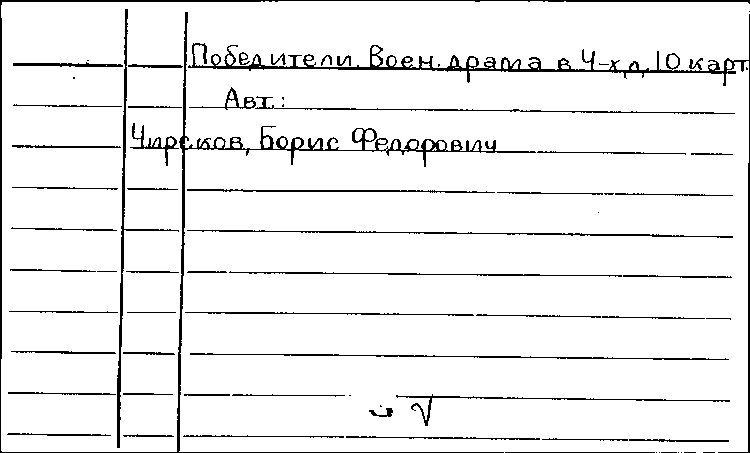 Победители. Воен. драма в 4-х д, 10 карт.
Авт.:
Чирсков, Борис Федорович